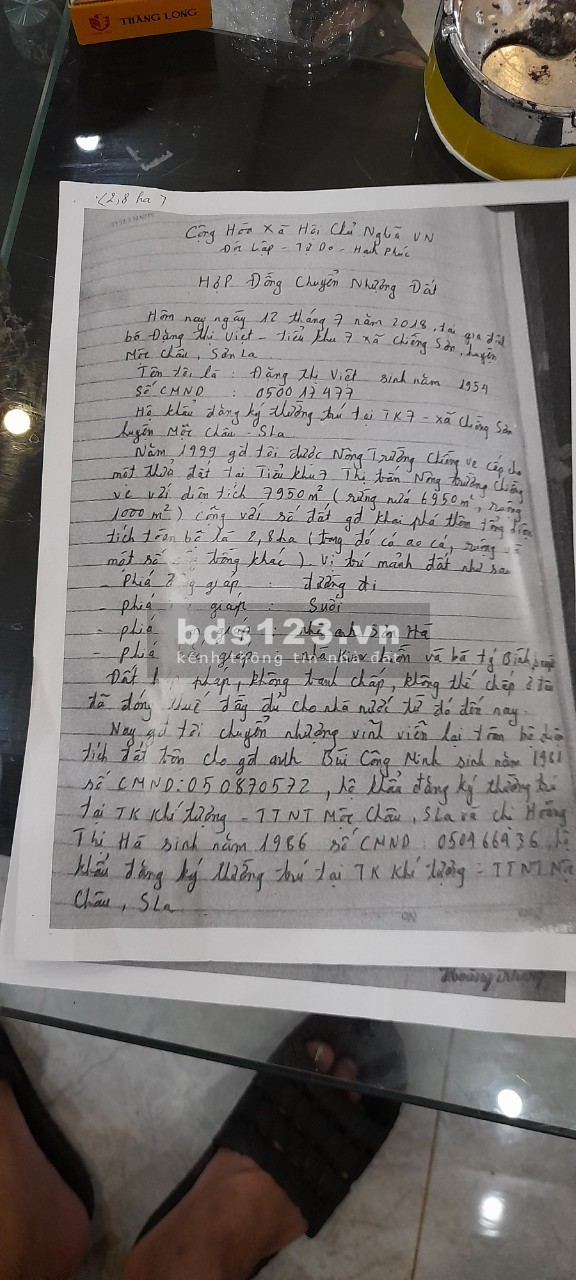 THĂNG LONG
(2,8 ha)
Cộng Hòa Xã Hội Chủ Nghĩa VN
Độc Lập - Tự Do - Hạnh Phúc
Hợp Đồng Chuyển Nhượng Đất
Hôm nay ngày 12 tháng 7 năm 2018, tại gia đình
bà Đặng Thị Việt - tiểu khu 7 xã Chiềng Sơn, huyện
Mộc Châu, Sơn La
Tên tôi là : Đặng Thị Việt sinh năm 1954
Số CMND : 050017477
Hộ khẩu đăng ký thường trú tại TK7 - xã Chiềng Sơn
huyện Mộc Châu - SLa
Năm 1999 gđ tôi được Nông Trường Chiềng Ve cấp cho
một thửa đất tại Tiểu khu 7 Thị trấn Nông trường Chiềng
Ve với diện tích 7950m² (rừng nứa 6950m², ruộng
1000m²) cộng với số đất gđ khai phá thêm tổng diện
tích toàn bộ là 2,8ha (trong đó có ao cá, ruộng và
một số cây trồng khác). Vị trí mảnh đất như sau
- Phía giáp : đường đi
- phía giáp : Suối
- phía giáp : nhà anh Sơn Hà
- phía giáp : nhà và bà Tý Bình
bds123.vn
kênh thông tin nhà đất
Đất hợp pháp, không tranh chấp, không thế chấp ở
đã đóng thuế đầy đủ cho nhà nước từ đó đến nay.
Nay gđ tôi chuyển nhượng vĩnh viễn lại toàn bộ diện
tích đất trên cho gđ anh Bùi Công Ninh sinh năm 1981
số CMND: 050870572, hộ khẩu đăng ký thường trú
tại TK Khí tượng - TTNT Mộc Châu, SLa và chị Hoàng
Thị Hà sinh năm 1986 số CMND: 050466936, hộ
khẩu đăng ký thường trú tại TK Khí tượng - TTNT Mộc
Châu, SLa